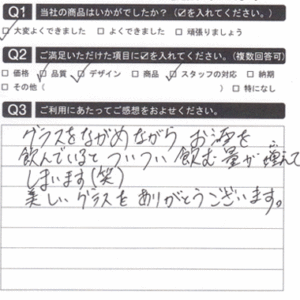 Q1 当社の商品はいかがでしたか？（☑を入れてください。）
☑大変よくできました □よくできました □頑張りましょう
Q2 ご満足いただけた項目に☑を入れてください。（複数回答可）
□価格 ☑品質 ☑デザイン □商品 ☑スタッフの対応 □納期
□その他（ ） □特になし
Q3 ご利用にあたってご感想をおよせください。
グラスをながめながら お酒を
飲んでいると ついつい 飲む量が増えて
しまいます(笑)
美しいグラスをありがとうございます。